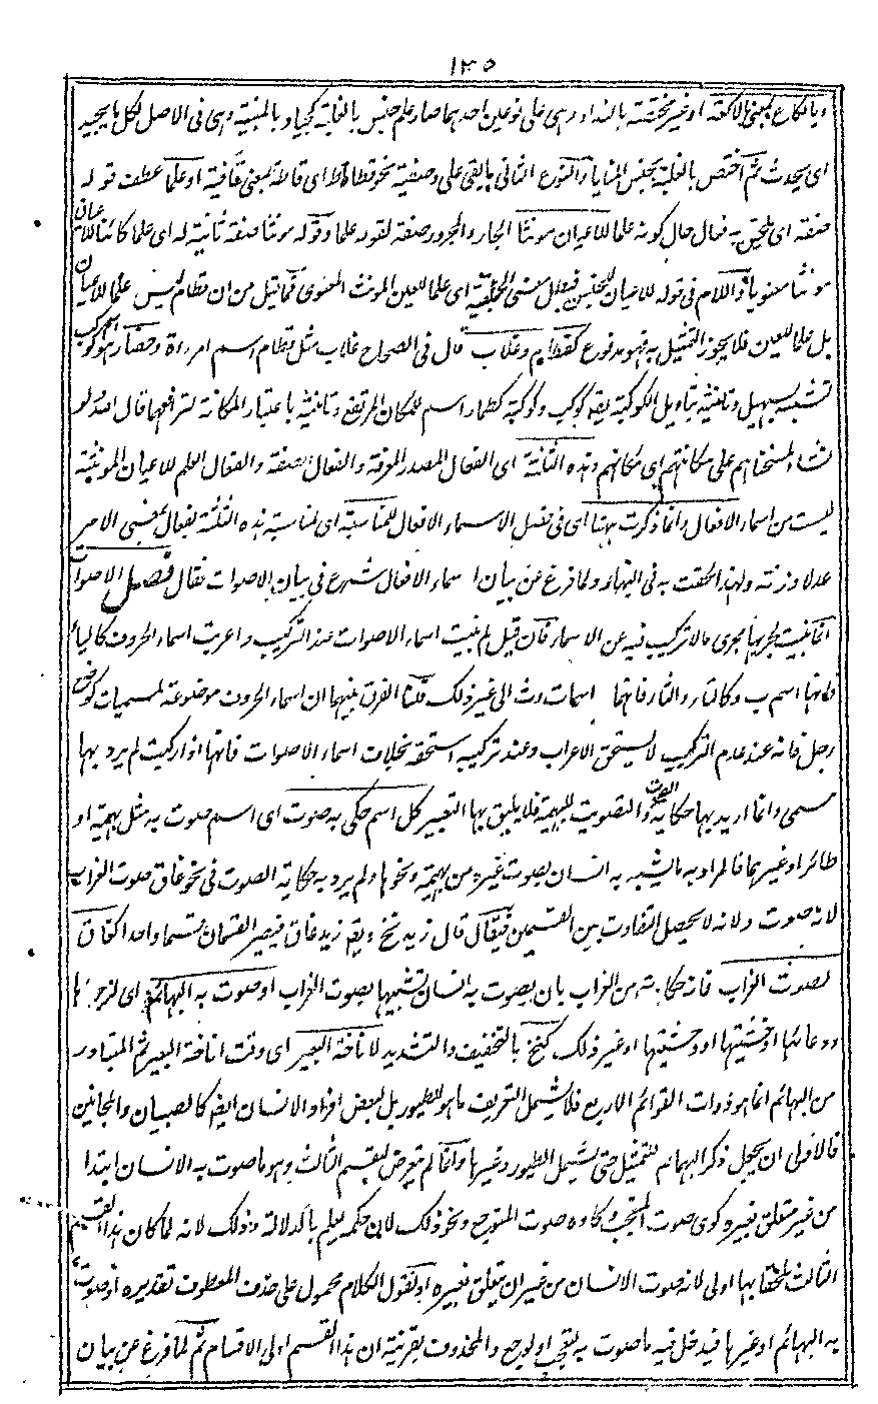 ١٣٥
ويالكاع بمعنى الاكعة او غير مختصة بالنداء وهى على نوعين احدهما صار علم جنس بالغلبة كجياد بالمنية وهى فى الاصل لكل ما يجيد
اى يحدث ثم اختص بالغلبة بجنس المنايا والنوع الثانى ما بقى على وصفية نحو قطاط اى قاطة بمعنى كافية او علما عطف قوله
صفة اى يلحق به فعال حال كونه علما للاعيان مونثا الجار والمجرور صفة لقوله علما وقوله مونثا صفة ثانية له اى علما كائنا للاعيان
مونثا معنويا فاللام فى قوله للاعيان للجنس فبطل معنى الجمعية اى علما للعين المونث المعنوى فما قيل من ان قطام ليس علما للاعيان
بل علما للعين فلا يجوز التمثيل به فهو مدفوع كقطام وغلاب قال فى الصحاح غلاب مثل قطام اسم امرءة وحضار هو كوكب
تشبيه بسهيل وتانيثه بتاويل الكوكبة يقه كوكب وكوكبة كطمار اسم للمكان المرتفع وتانيثه باعتبار المكانة لترافعها قال الله لو
نشاء لمسخناهم على مكانتهم اى مكانهم وهذه الثلثة اى الفعال المصدر المعرفة والفعال الصفة والفعال العلم للاعيان المونثة
ليست من اسماء الافعال وانما ذكرت ههنا اى فى فصل الاسماء الافعال للمناسبة اى لمناسبة هذه الثلثة بفعال بمعنى الامر
عدلا وزنة ولهذا الحقت به فى البناء ولما فرغ عن بيان اسماء الافعال شرع فى بيان الاصوات فقال فصل الاصوات
انما بنيت لجريها مجرى ما لا تركيب فيه عن الاسماء فان قيل لم بنيت اسماء الاصوات عند التركيب واعربت اسماء الحروف كالباء
فانها اسم ب وكالتاء والثاء فانهما اسمات وث الى غير ذلك قلنا الفرق بينهما ان اسماء الحروف موضوعة لمسميات كوضع
رجل فانه عند عدم التركيب لا يستحق الاعراب وعند تركيبه استحقه بخلاف اسماء الاصوات فانها اذا ركبت لم يرد بها
مسمى وانما اريد بها حكاية الصوت والتصويت للبهيمة فلا يليق بها التعبير كل اسم حكى به صوت اى اسم صوت به مثل بهيمة او
طائر او غيرهما فالمراد به ما يشبه به انسان بصوت غيره من بهيمة ونحوها ولم يرد به حكاية الصوت فى نحو غاق صوت الغراب
لانه صوت ولانه لا يحصل التفاوت بين القسمين فيقال قال زيد نخ ويقه زيد غاق فيصير القسمان قسما واحدا كغاق
لصوت الغراب فانه حكاية من الغراب بان يصوت به انسان تشبيها بصوت الغراب او صوت به البهائم اى لزجرها
ودعائها او خشيتها او وحشيتها او غير ذلك كنخ بالتخفيف والتشديد لاناخة البعير اى وقت اناخة البعير ثم المتبادر
من البهائم انما هو ذوات القوائم الاربع فلا يشمل التعريف ما هو للطيور بل لبعض افراد الانسان ايضا كالصبيان والمجانين
فالاولى ان يجعل ذكر البهائم للتمثيل حتى يشمل الطيور وغيرها وانما لم يتعرض لقسم الثالث وهو ما صوت به الانسان ابتدا
من غير متعلق بغيره كوى صوت المتعجب وكاوه صوت المتوجع ونحو ذلك لان حكمه يعلم بالدلالة وذلك لانه لما كان هذا القسم
الثالث ملحقا بها اولى لانه صوت الانسان من غير ان يتعلق بغيره او نقول الكلام محمول على حذف المعطوف تقديره او صوت
به البهائم او غيرها فيدخل فيه ما صوت به لتعجب او لوجع والمحذوف بقرينة ان هذا القسم اولى الاقسام ثم لما فرغ عن بيان